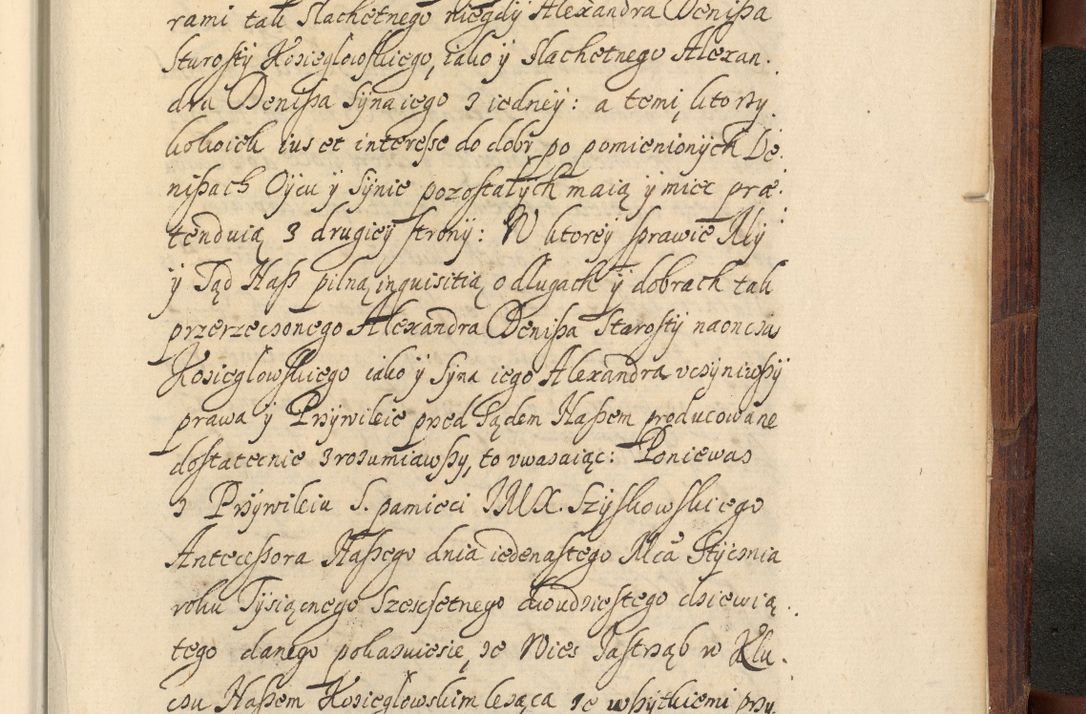 rami tak Slachetnego niegdy Alexandra Denißa
Starosty Kozieglowskiego, iako y Slachetnego Alexan.
dra Denißa Syna iego z iedney: a temi, ktorzy
kolwiek ius et interesse do dobr po pomienionych De:
nißach Oycu y Synie pozostałych maią y miec præ:
tenduią z drugiey strony: W ktorey sprawie My
y Sąd Naß pilną inquisitią o dlugach y dobrach tak
przerzeczonego Alexandra Denißa Starosty naonczas
Kozieglowskiego iako y Syna iego Alexandra vczyniwßy
prawa y Przywileie przed Sądem Naßem producowane
dostatecnie zrozumiawßy, to vwazaiąc: Poniewaz
z Przywileiu S. pamieci JMX. Szyskowskiego
Antecessora Naßego dnia iedenastego Mca Stycznia
roku Tysiącnego Szescsetnego dwudziestego dziewią.
tego danego pokazuiesie, ze Wies Jastrząb w Klu.
czu Naßem Kozieglowskim leząca ze wßytkiemi przy.